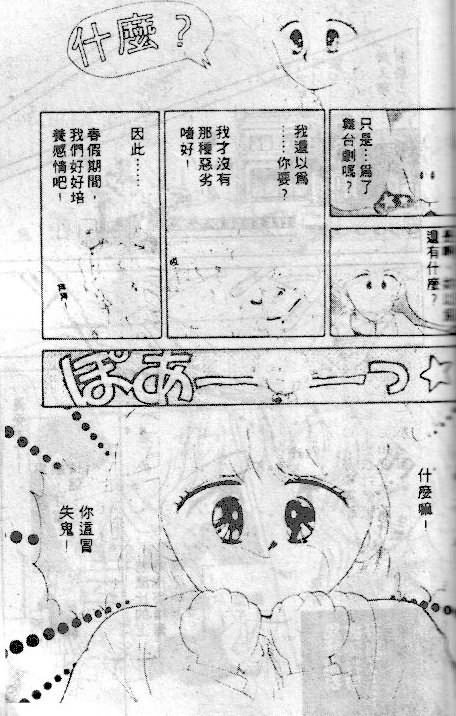 什麼？
只是…為了
舞台劇嗎？
還有什麼？
我還以為
……你要？
我才沒有
那種惡劣
嗜好！
哎
因此……
春假期間，
我們好好培
養感情吧！
ぽあーーーっ☆
什麼嘛！
你這冒
失鬼！